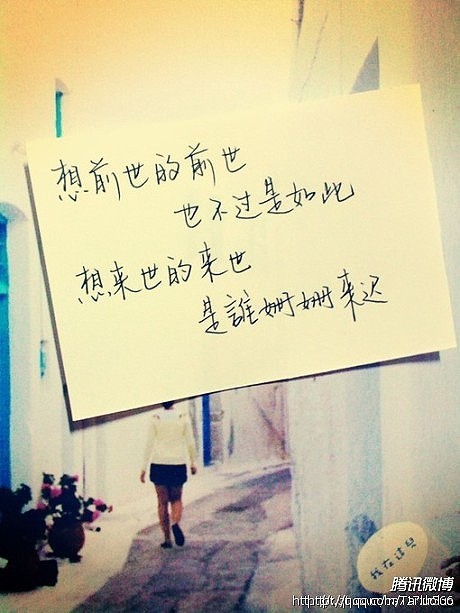 想前世的前世
也不过是如此
想来世的来世
是誰姗姗来迟
我在這兒
腾讯微博